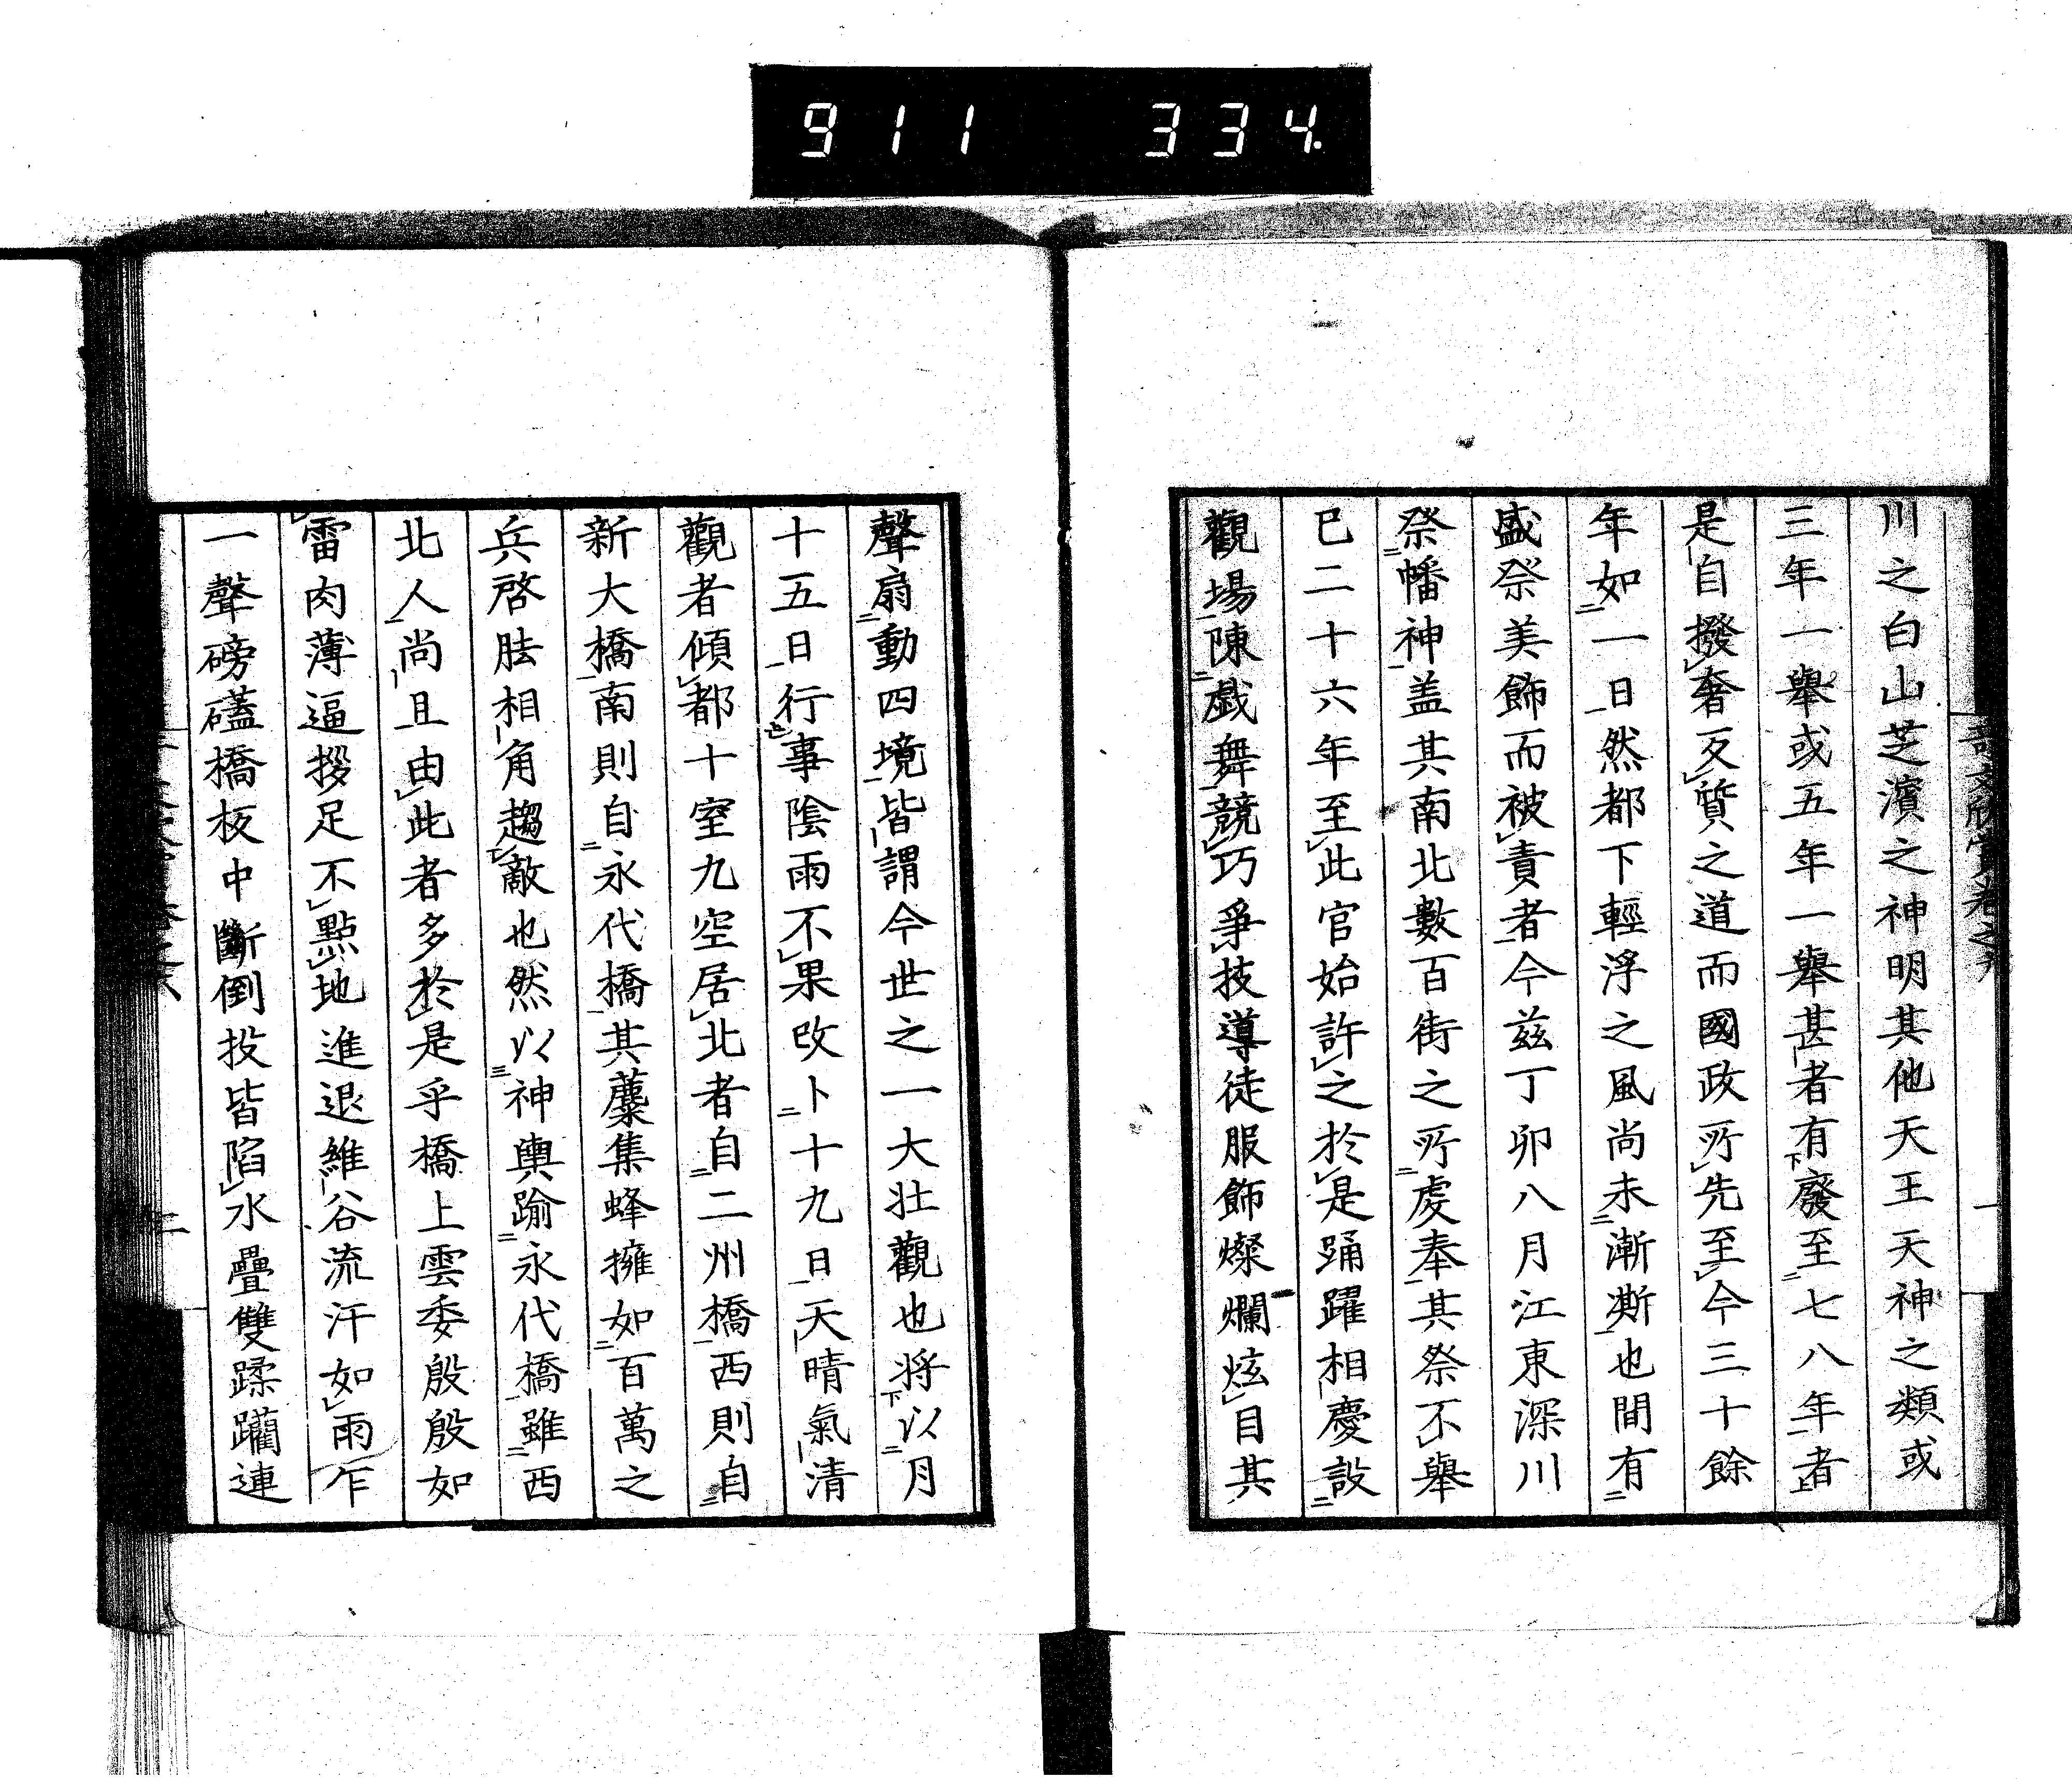 911 334.
川之白山芝濱之神明其他天王天神之類或
三年一舉或五年一舉甚者有廢至七八年者
是自撥奢反質之道而國政所先至今三十餘
年如一日然都下輕浮之風尚未漸澌也間有
盛祭美飾而被責者今茲丁卯八月江東深川
祭幡神盖其南北數百街之所處奉其祭不舉
已二十六年至此官始許之於是踊躍相慶設
觀場陳戲舞競巧爭技導徒服飾燦爛炫目其
聲扇動四境皆謂今世之一大壯觀也将以月
十五日行事陰雨不果改卜十九日天晴氣清
觀者傾都十室九空居北者自二州橋西則自
新大橋南則自永代橋其麇集蜂擁如百萬之
兵啓胠相角趨敵也然以神輿踰永代橋雖西
北人尚且由此者多於是乎橋上雲委殷殷如
雷肉薄逼拶足不點地進退維谷流汗如雨乍
一聲磅礚橋板中斷倒投皆陷水疊雙蹂躪連